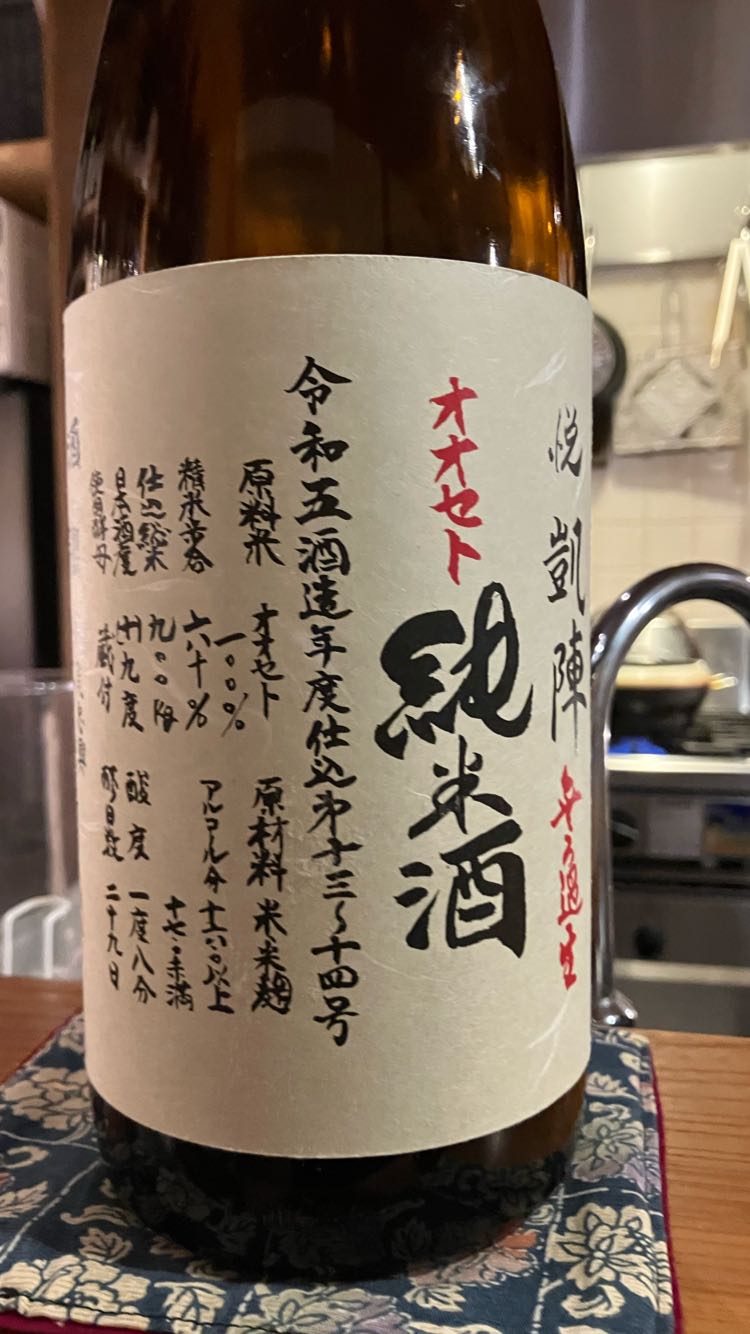 悦 凱陣 无ろ過生
オオセト
純米酒
令和五酒造年度仕込㐧十三〜十四号
原料米 オオセト 原材料 米・米麹
一〇〇%
精米歩合 六十% アルコール分 十六・〇以上
十七・〇未満
仕込総米 九〇〇kg
日本酒度 (+)九度 酸度 一度八分
使用酵母 蔵付 醪日数 二十九日